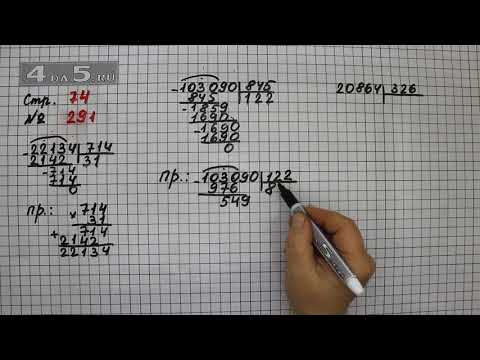 4 ДА 5.RU
Стр. 74
№ 291
-22134 | 714
2142 | 31
-714
714
0
пр.: × 714
31
+ 714
2142
22134
-103090 | 845
845 | 122
-1859
1690
-1690
1690
0
пр.: -103090 | 122
976 | 8
549
20864 | 326